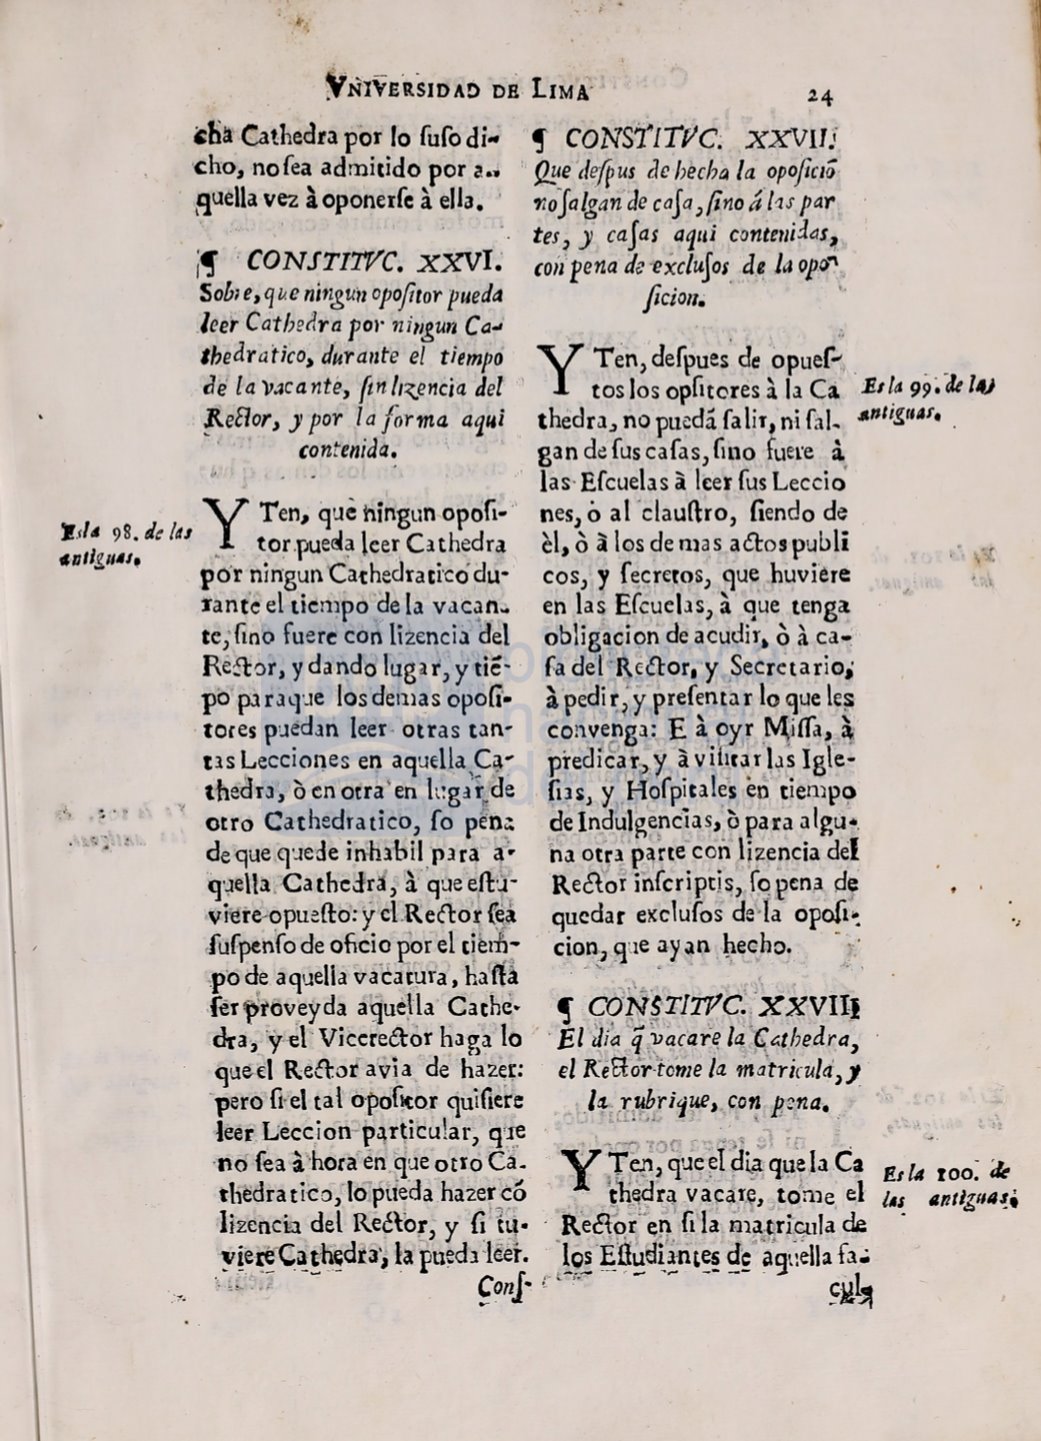 VNIVERSIDAD DE LIMA 24
cha Cathedra por lo ſuſo di-
cho, no ſea admitido por a-
quella vez à oponerſe à ella.
¶ CONSTITVC. XXVI.
Sobre, que ningun opoſitor pueda
leer Cathedra por ningun Ca-
thedratico, durante el tiempo
de la vacante, ſin lizencia del
Rector, y por la forma aqui
contenida.
Es la 98. de las
antiguas.
YTen, que ningun opoſi-
tor pueda leer Cathedra
por ningun Cathedratico du-
rante el tiempo de la vacan-
te, ſino fuere con lizencia del
Rector, y dando lugar, y tiē-
po paraque los demas opoſi-
tores puedan leer otras tan-
tas Lecciones en aquella Ca-
thedra, ò en otra en lugar de
otro Cathedratico, ſo pena
de que quede inhabil para a-
quella Cathedra, à que eſtu-
viere opueſto: y el Rector ſea
ſuſpenſo de oficio por el tiem-
po de aquella vacatura, haſta
ſer proveyda aquella Cathe-
dra, y el Vicerector haga lo
que el Rector avia de hazer:
pero ſi el tal opoſitor quiſiere
leer Leccion particular, que
no ſea à hora en que otro Ca-
thedratico, lo pueda hazer cō
lizencia del Rector, y ſi tu-
viere Cathedra, la pueda leer.
Conſ-
¶ CONSTITVC. XXVII.
Que deſpus de hecha la opoſiciō
no ſalgan de caſa, ſino á las par
tes, y caſas aqui contenidas,
con pena de excluſos de la opo-
ſicion.
YTen, deſpues de opueſ-
tos los opſitores à la Ca
thedra, no puedā ſalir, ni ſal-
gan de ſus caſas, ſino fuere à
las Eſcuelas à leer ſus Leccio
nes, ò al clauſtro, ſiendo de
èl, ò à los de mas actos publi
cos, y ſecretos, que huviere
en las Eſcuelas, à que tenga
obligacion de acudir, ò à ca-
ſa del Rector, y Secretario,
à pedir, y preſentar lo que les
convenga: E à oyr Miſſa, à
predicar, y à viſitar las Igle-
ſias, y Hoſpitales en tiempo
de Indulgencias, ò para algu-
na otra parte con lizencia del
Rector inſcriptis, ſo pena de
quedar excluſos de la opoſi-
cion, que ayan hecho.
Es la 99. de las
antiguas.
¶ CONSTITVC. XXVIII
El dia q̃ vacare la Cathedra,
el Rector tome la matricula, y
la rubrique, con pena.
YTen, que el dia que la Ca
thedra vacare, tome el
Rector en ſi la matricula de
los Eſtudiantes de aquella fa-
cul-
Es la 100. de
las antiguas.